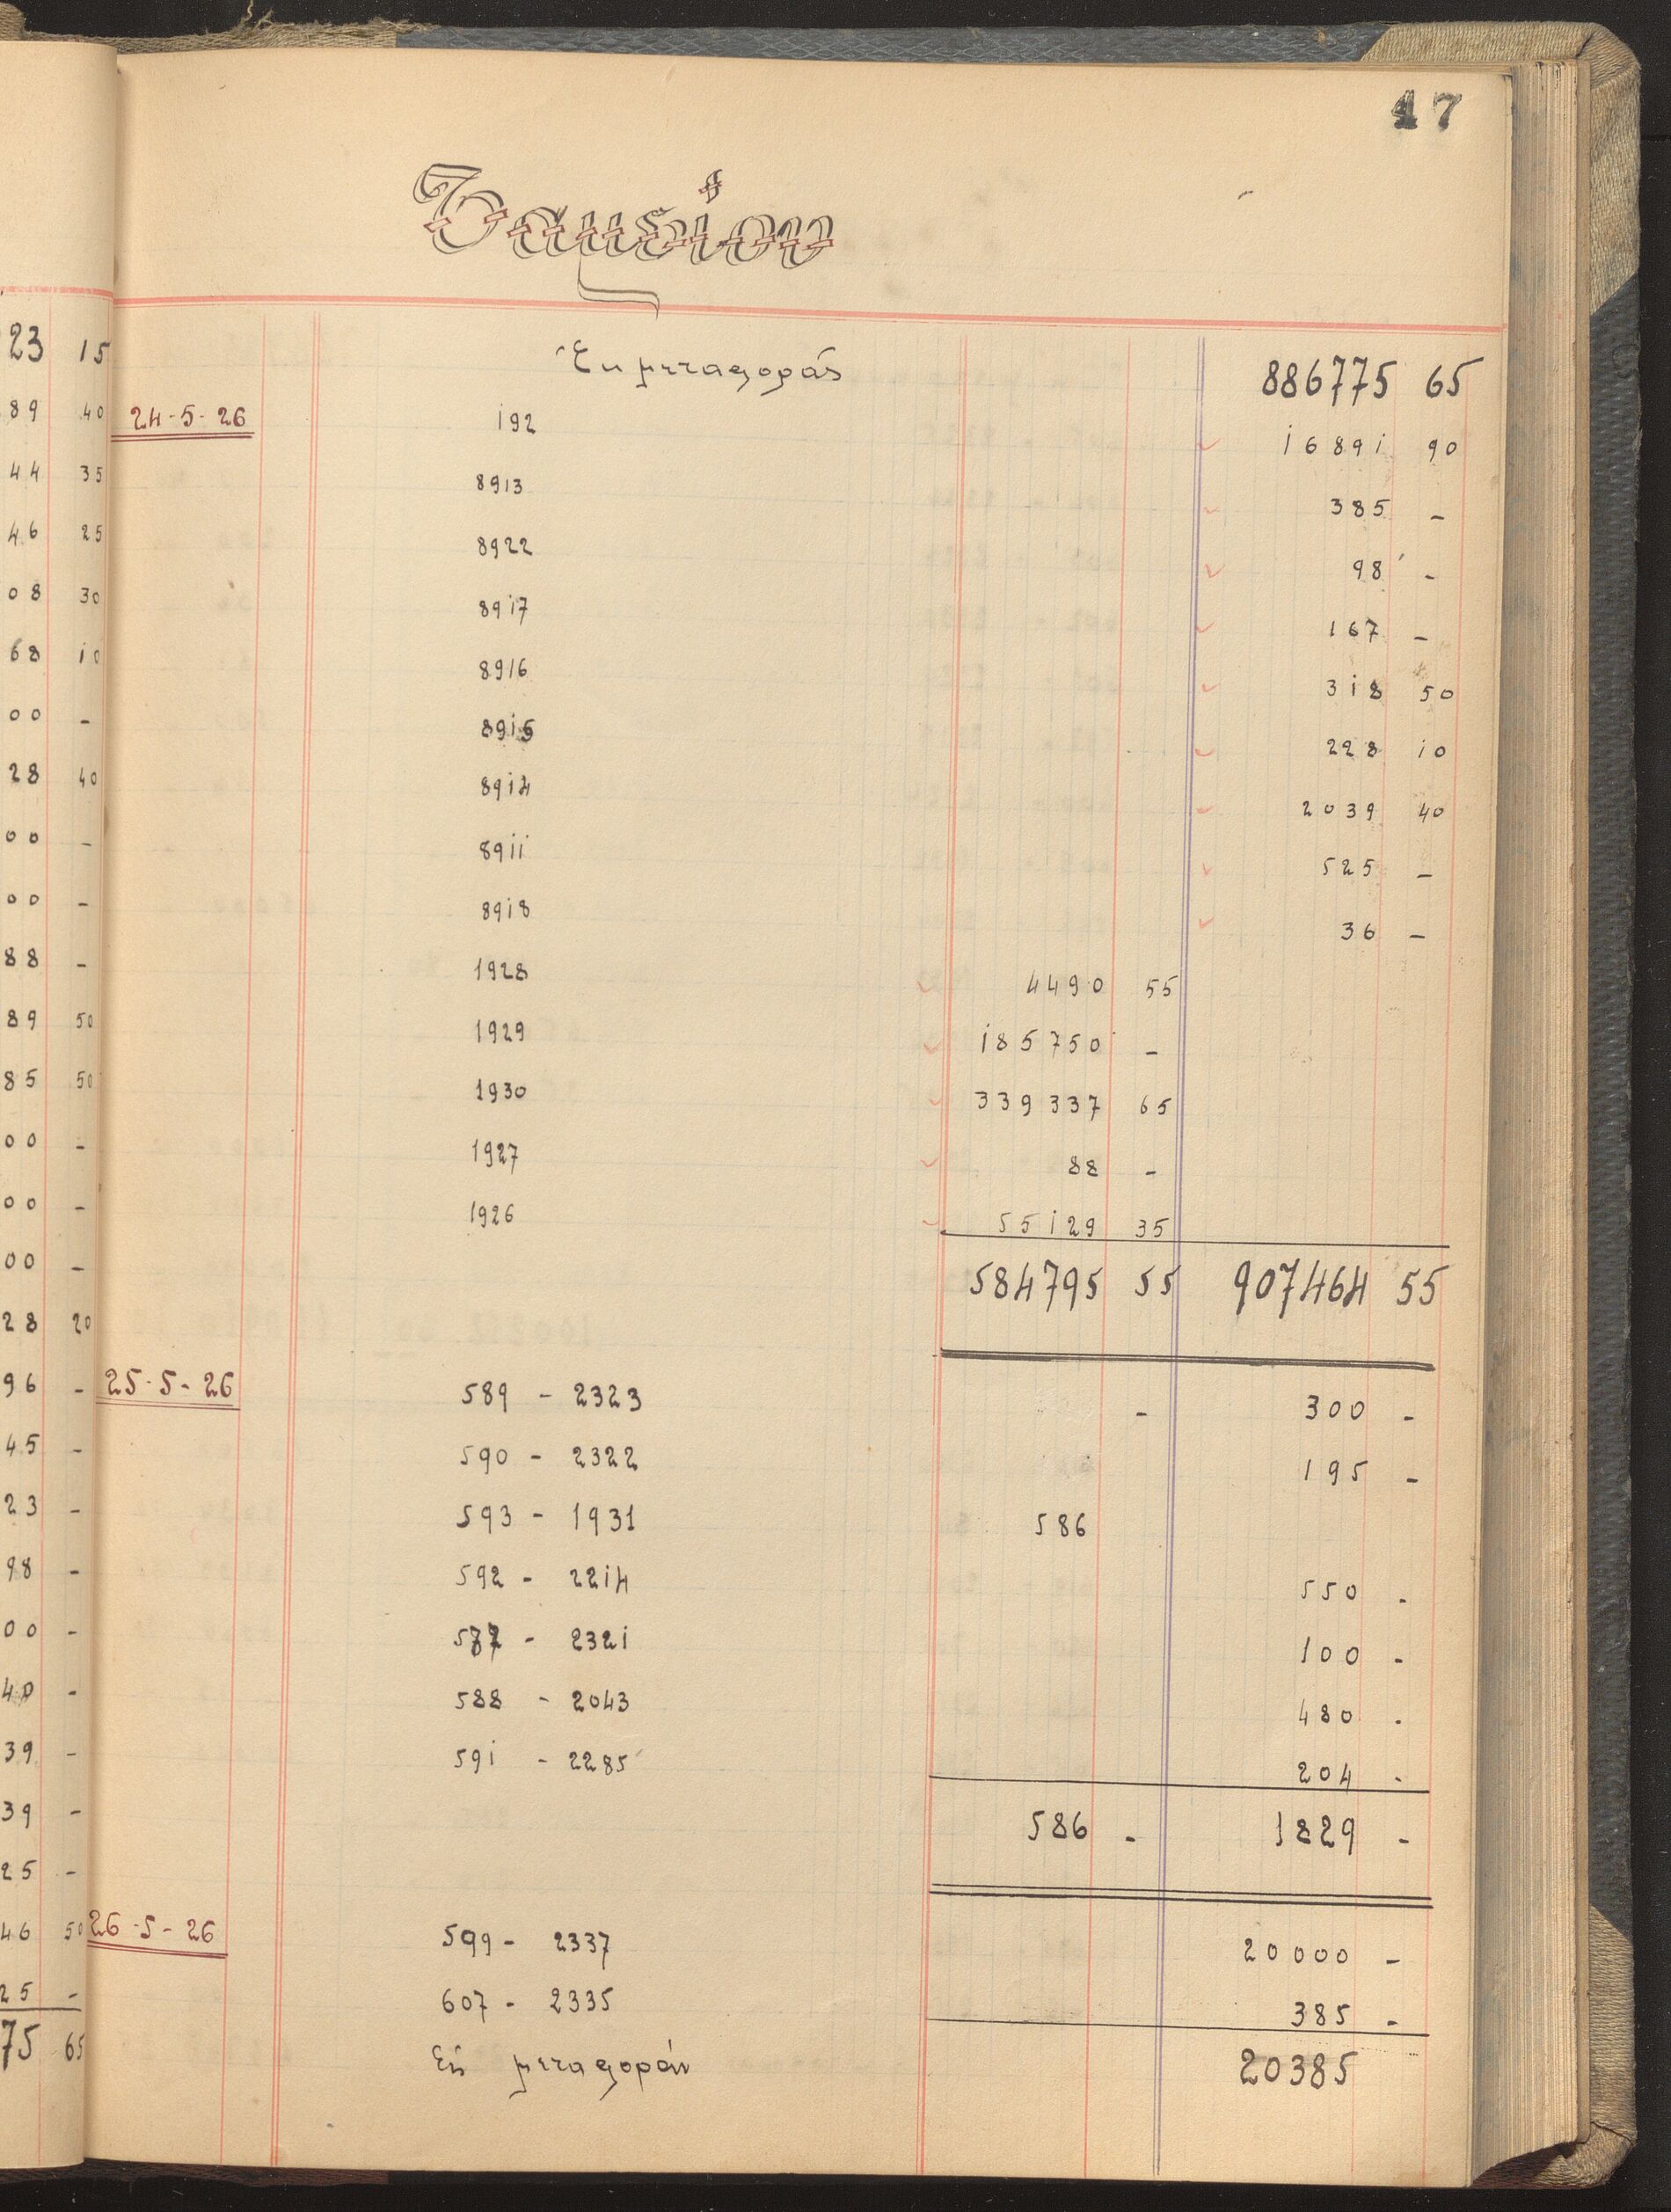 17
Ταμείου
23 15 Ἐκ μεταφορᾶς 886775 65
89 40 24-5-26 192 16891 90
44 35 8913 385 -
46 25 8922 98 -
08 30 8917 167 -
68 10 8916 318 50
00 - 8915 228 10
28 40 8914 2039 40
00 - 8911 525 -
00 - 8918 36 -
88 - 1928 4490 55
89 50 1929 185750 -
85 50 1930 339337 65
00 - 1927 88 -
00 - 1926 55129 35
00 - 584795 55 907464 55
28 20
96 - 25-5-26 589 - 2323 - 300 -
45 - 590 - 2322 195 -
23 - 593 - 1931 586
98 - 592 - 2214 550 -
00 - 587 - 2321 100 -
40 - 588 - 2043 480 -
39 - 591 - 2285 204 -
39 - 586 - 1829 -
25 -
46 50 26-5-26 599 - 2337 20000 -
25 - 607 - 2335 385 -
75 65 Εἰς μεταφοράν 20385